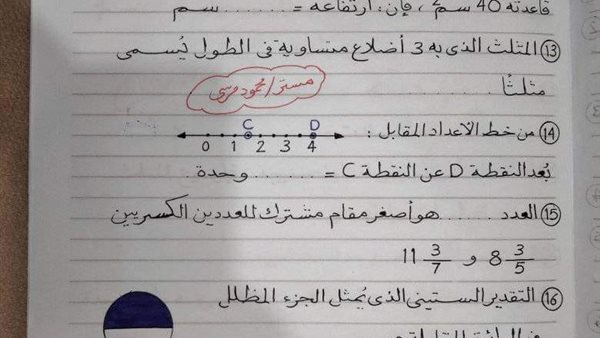 قاعدته 40 سم²، فإن: ارتفاعه = ........ سم
⑬ المثلث الذى به 3 أضلاع متساوية فى الطول يُسمى
مثلثًا ........
مستر/ محمود مرسى
⑭ من خط الأعداد المقابل:
C D
0 1 2 3 4
بُعد النقطة D عن النقطة C = ........ وحدة
⑮ العدد ........ هو أصغر مقام مشترك للعددين الكسريين
8 3/5 و 11 3/7
⑯ التقدير الستينى الذى يُمثل الجزء المظلل